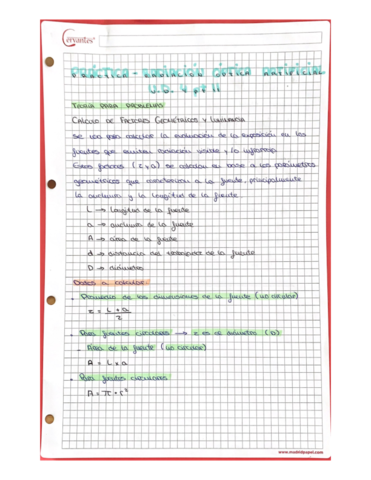 Cervantes
PRÁCTICA - RADIACIÓN ÓPTICA ARTIFICIAL
U.D. 4 pt II
TEORÍA PARA PROBLEMAS
CÁLCULO DE FACTORES GEOMÉTRICOS Y LUMINANCIA
Se usa para calcular la evaluación de la exposición en las
fuentes que emiten radiación visible y/o infrarroja
Estos factores (z y α) se calculan en base a los parámetros
geométricos que caracterizan a la fuente, principalmente
la anchura y la longitud de la fuente.
L → longitud de la fuente
a → anchura de la fuente
A → área de la fuente
d → distancia del trabajador de la fuente
D → diámetro
Datos a calcular
- Promedio de las dimensiones de la fuente (no circular)
z = L + a
2
- Para fuentes circulares → z es el diámetro (D)
- Área de la fuente (no circular)
A = L × a
- Para fuentes circulares
A = π · r²
www.madridpapel.com